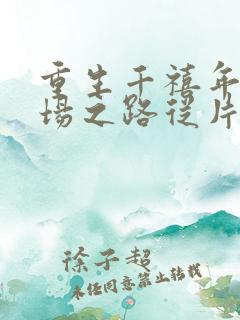 重生千禧年
场之路从片
徐子超
未经同意禁止转载